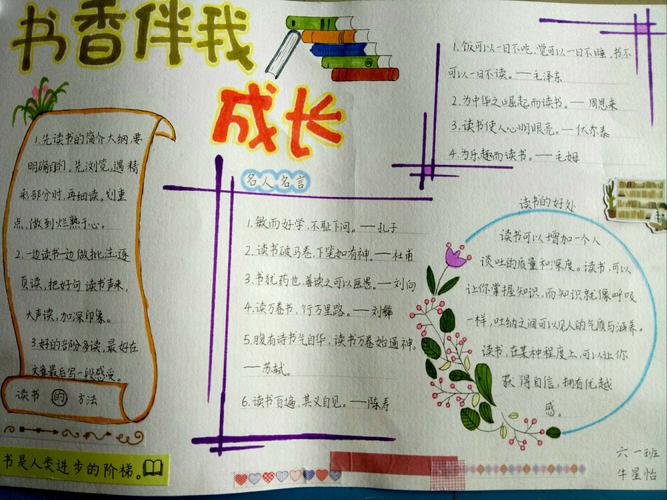 书香伴我
成长
1.先读书的简介大纲,要
明确目的,先浏览,遇精
彩部分时,再细读,划重
点,做到烂熟于心。
2.一边读书一边做批注,逐
页读,把好句读出声来,
大声读,加深印象。
3.好的部分多读,最好在
文章最后写一段感受。
读书的方法
书是人类进步的阶梯。
名人名言
1.敏而好学,不耻下问。—孔子
2.读书破万卷,下笔如有神。—杜甫
3.书犹药也,善读之可以医愚。—刘向
4.读万卷书,行万里路。—刘彝
5.腹有诗书气自华,读书万卷始通神。
—苏轼。
6.读书百遍,其义自见。—陈寿
1.饭可以一日不吃,觉可以一日不睡,书不
可以一日不读。—毛泽东
2.为中华之崛起而读书。—周恩来
3.读书使人心明眼亮。—伏尔泰
4.为乐趣而读书。—毛姆
读书的好处
读书可以增加一个人
谈吐的质量和深度。读书,可以
让你掌握知识,而知识就像呼吸
一样,吐纳之间可以见人的气质与涵养。
读书,在某种程度上,可以让你
获得自信,拥有优越
感。
六一班
牛星怡